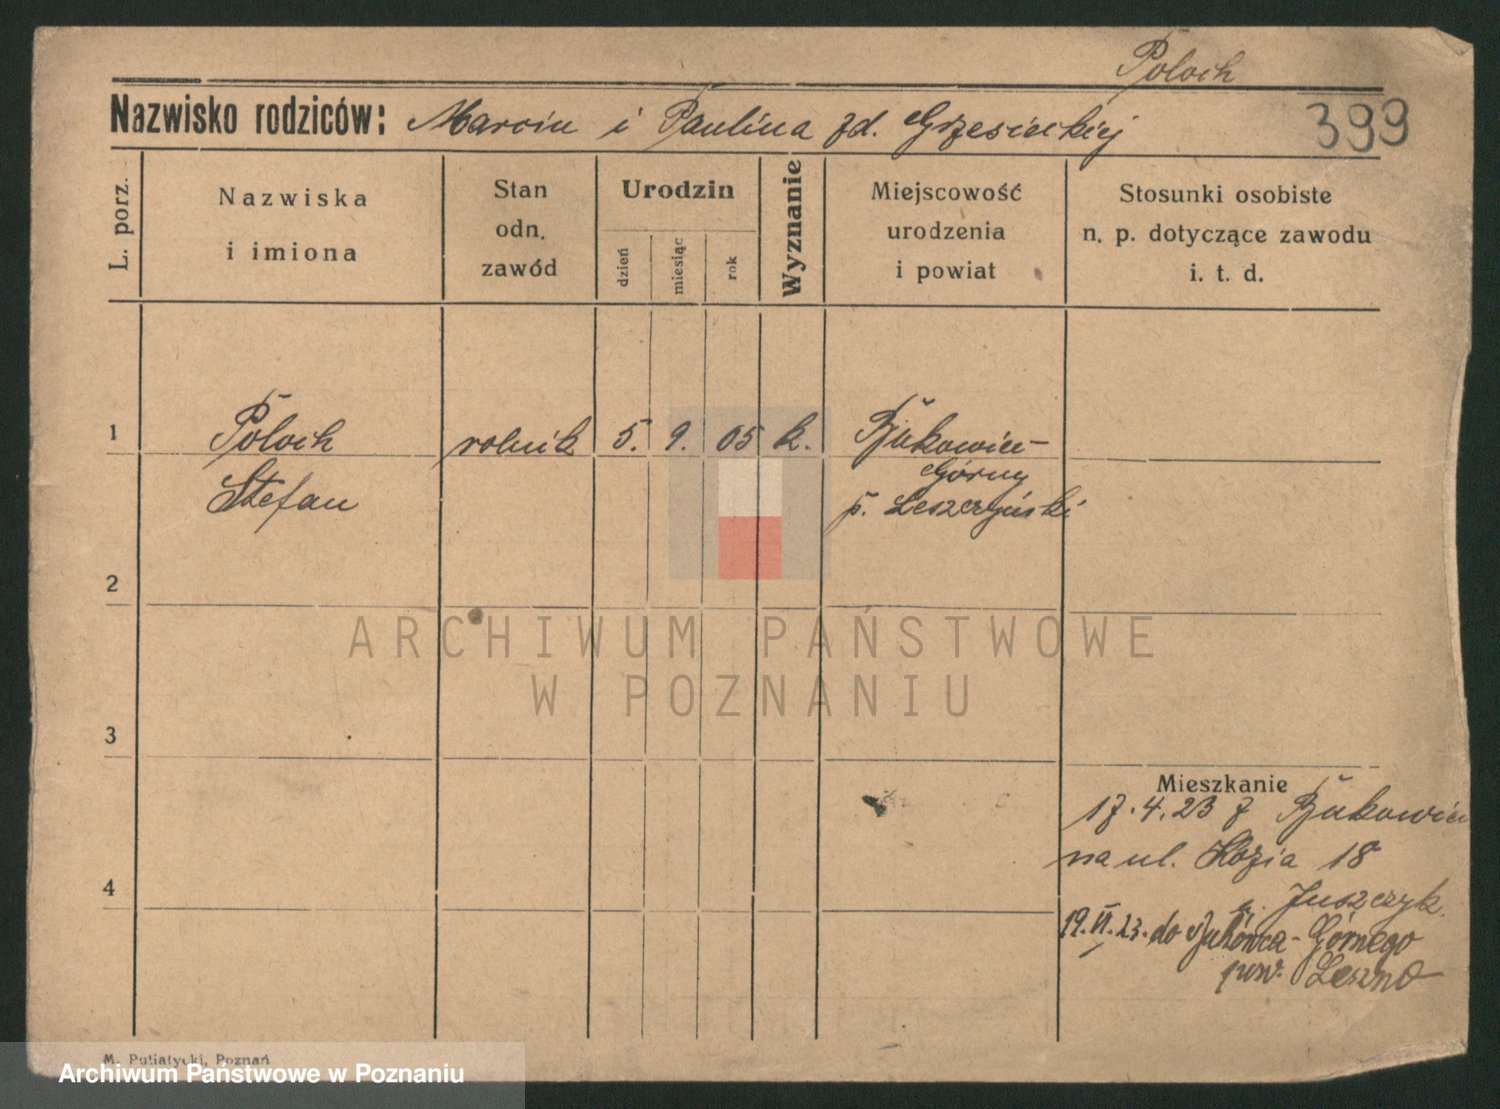 Poloch
Nazwisko rodziców: Marcin i Paulina zd. Grzesieckiej
399
L. porz.
Nazwiska
i imiona
Stan
odn.
zawód
Urodzin
dzień
miesiąc
rok
Wyznanie
Miejscowość
urodzenia
i powiat
Stosunki osobiste
n. p. dotyczące zawodu
i. t. d.
1 Poloch rolnik 5. 9. 05 k. Bukowiec-
Górny
Stefan p. Leszczyński
2
ARCHIWUM PAŃSTWOWE
W POZNANIU
3
Mieszkanie
17.4.23 z Bukowiec
na ul. Kozia 18
Juszczyk
19.VI.23. do Bukówca-Górnego
pow. Leszno
4
M. Putiatycki, Poznań
Archiwum Państwowe w Poznaniu